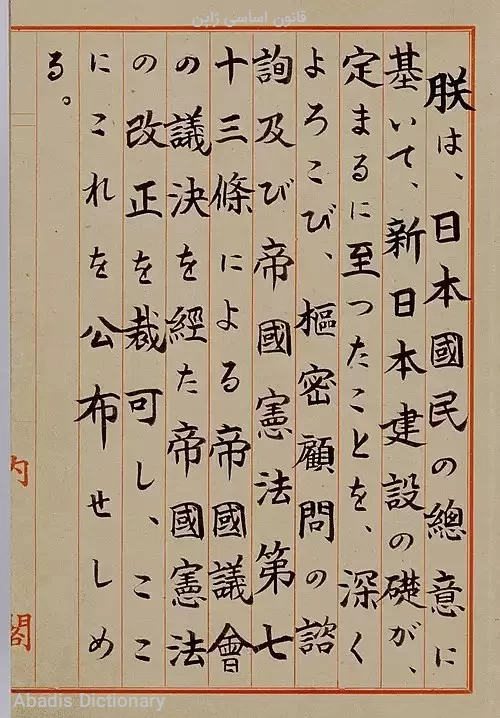 قانون اساسی ژاپن
朕は、日本國民の總意に
基いて、新日本建設の礎が、
定まるに至つたことを、深く
よろこび、樞密顧問の諮
詢及び帝國憲法第七
十三條による帝國議會
の議決を經た帝國憲法
の改正を裁可し、ここ
にこれを公布せしめ
る。
内閣
Abadis Dictionary